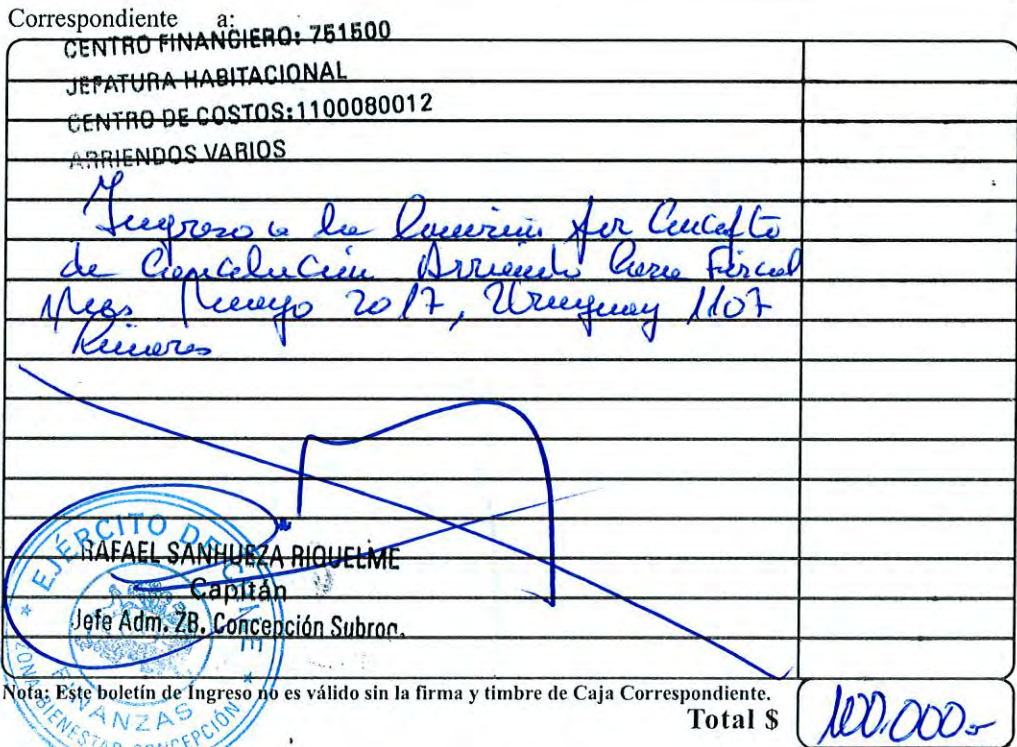 Correspondiente a:
CENTRO FINANCIERO: 751500
JEFATURA HABITACIONAL
CENTRO DE COSTOS:1100080012
ARRIENDOS VARIOS
Ingreso a la Comisión por Concepto
de Cancelación Arriendo Casa Fiscal
Mes Mayo 2017, Uruguay 1107
Linares
EJÉRCITO DE CHILE
RAFAEL SANHUEZA RIQUELME
Capitán
Jefe Adm. ZB. Concepción Subrog.
FINANZAS
ZONA BIENESTAR CONCEPCIÓN
Nota: Este boletín de Ingreso no es válido sin la firma y timbre de Caja Correspondiente.
Total $ 100.000.-